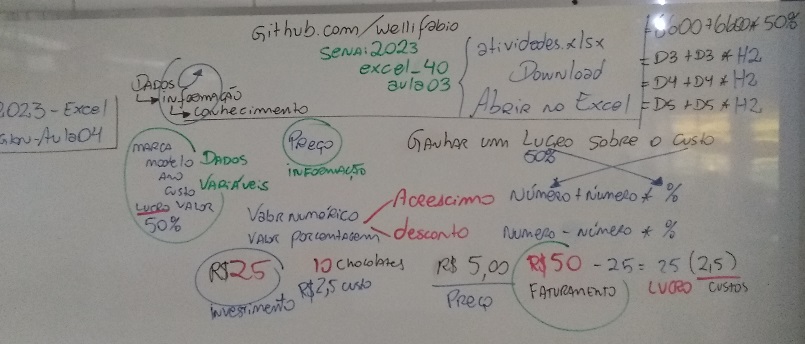 Github.com/wellifabio
SENAI 2023
excel_40
aula03
atividades.xlsx
Download
Abrir no Excel
=6600+6600*50%
=D3+D3*H2
=D4+D4*H2
=D5+D5*H2
DADOS
INFORMAÇÃO
CONHECIMENTO
2023-Excel
Aula04
MARCA
modelo
ANO
CUSTO
LUCRO VALOR
50%
DADOS
VARIÁVEIS
PREÇO
INFORMAÇÃO
GANHAR UM LUCRO SOBRE O CUSTO
50%
Valor numérico
VALOR PORCENTAGEM
Acrescimo Número + Número * %
desconto Numero - Número * %
R$25
investimento
10 chocolates
R$2,5 custo
R$ 5,00
PREÇO
R$50 - 25 = 25 (2,5)
FATURAMENTO LUCRO CUSTOS